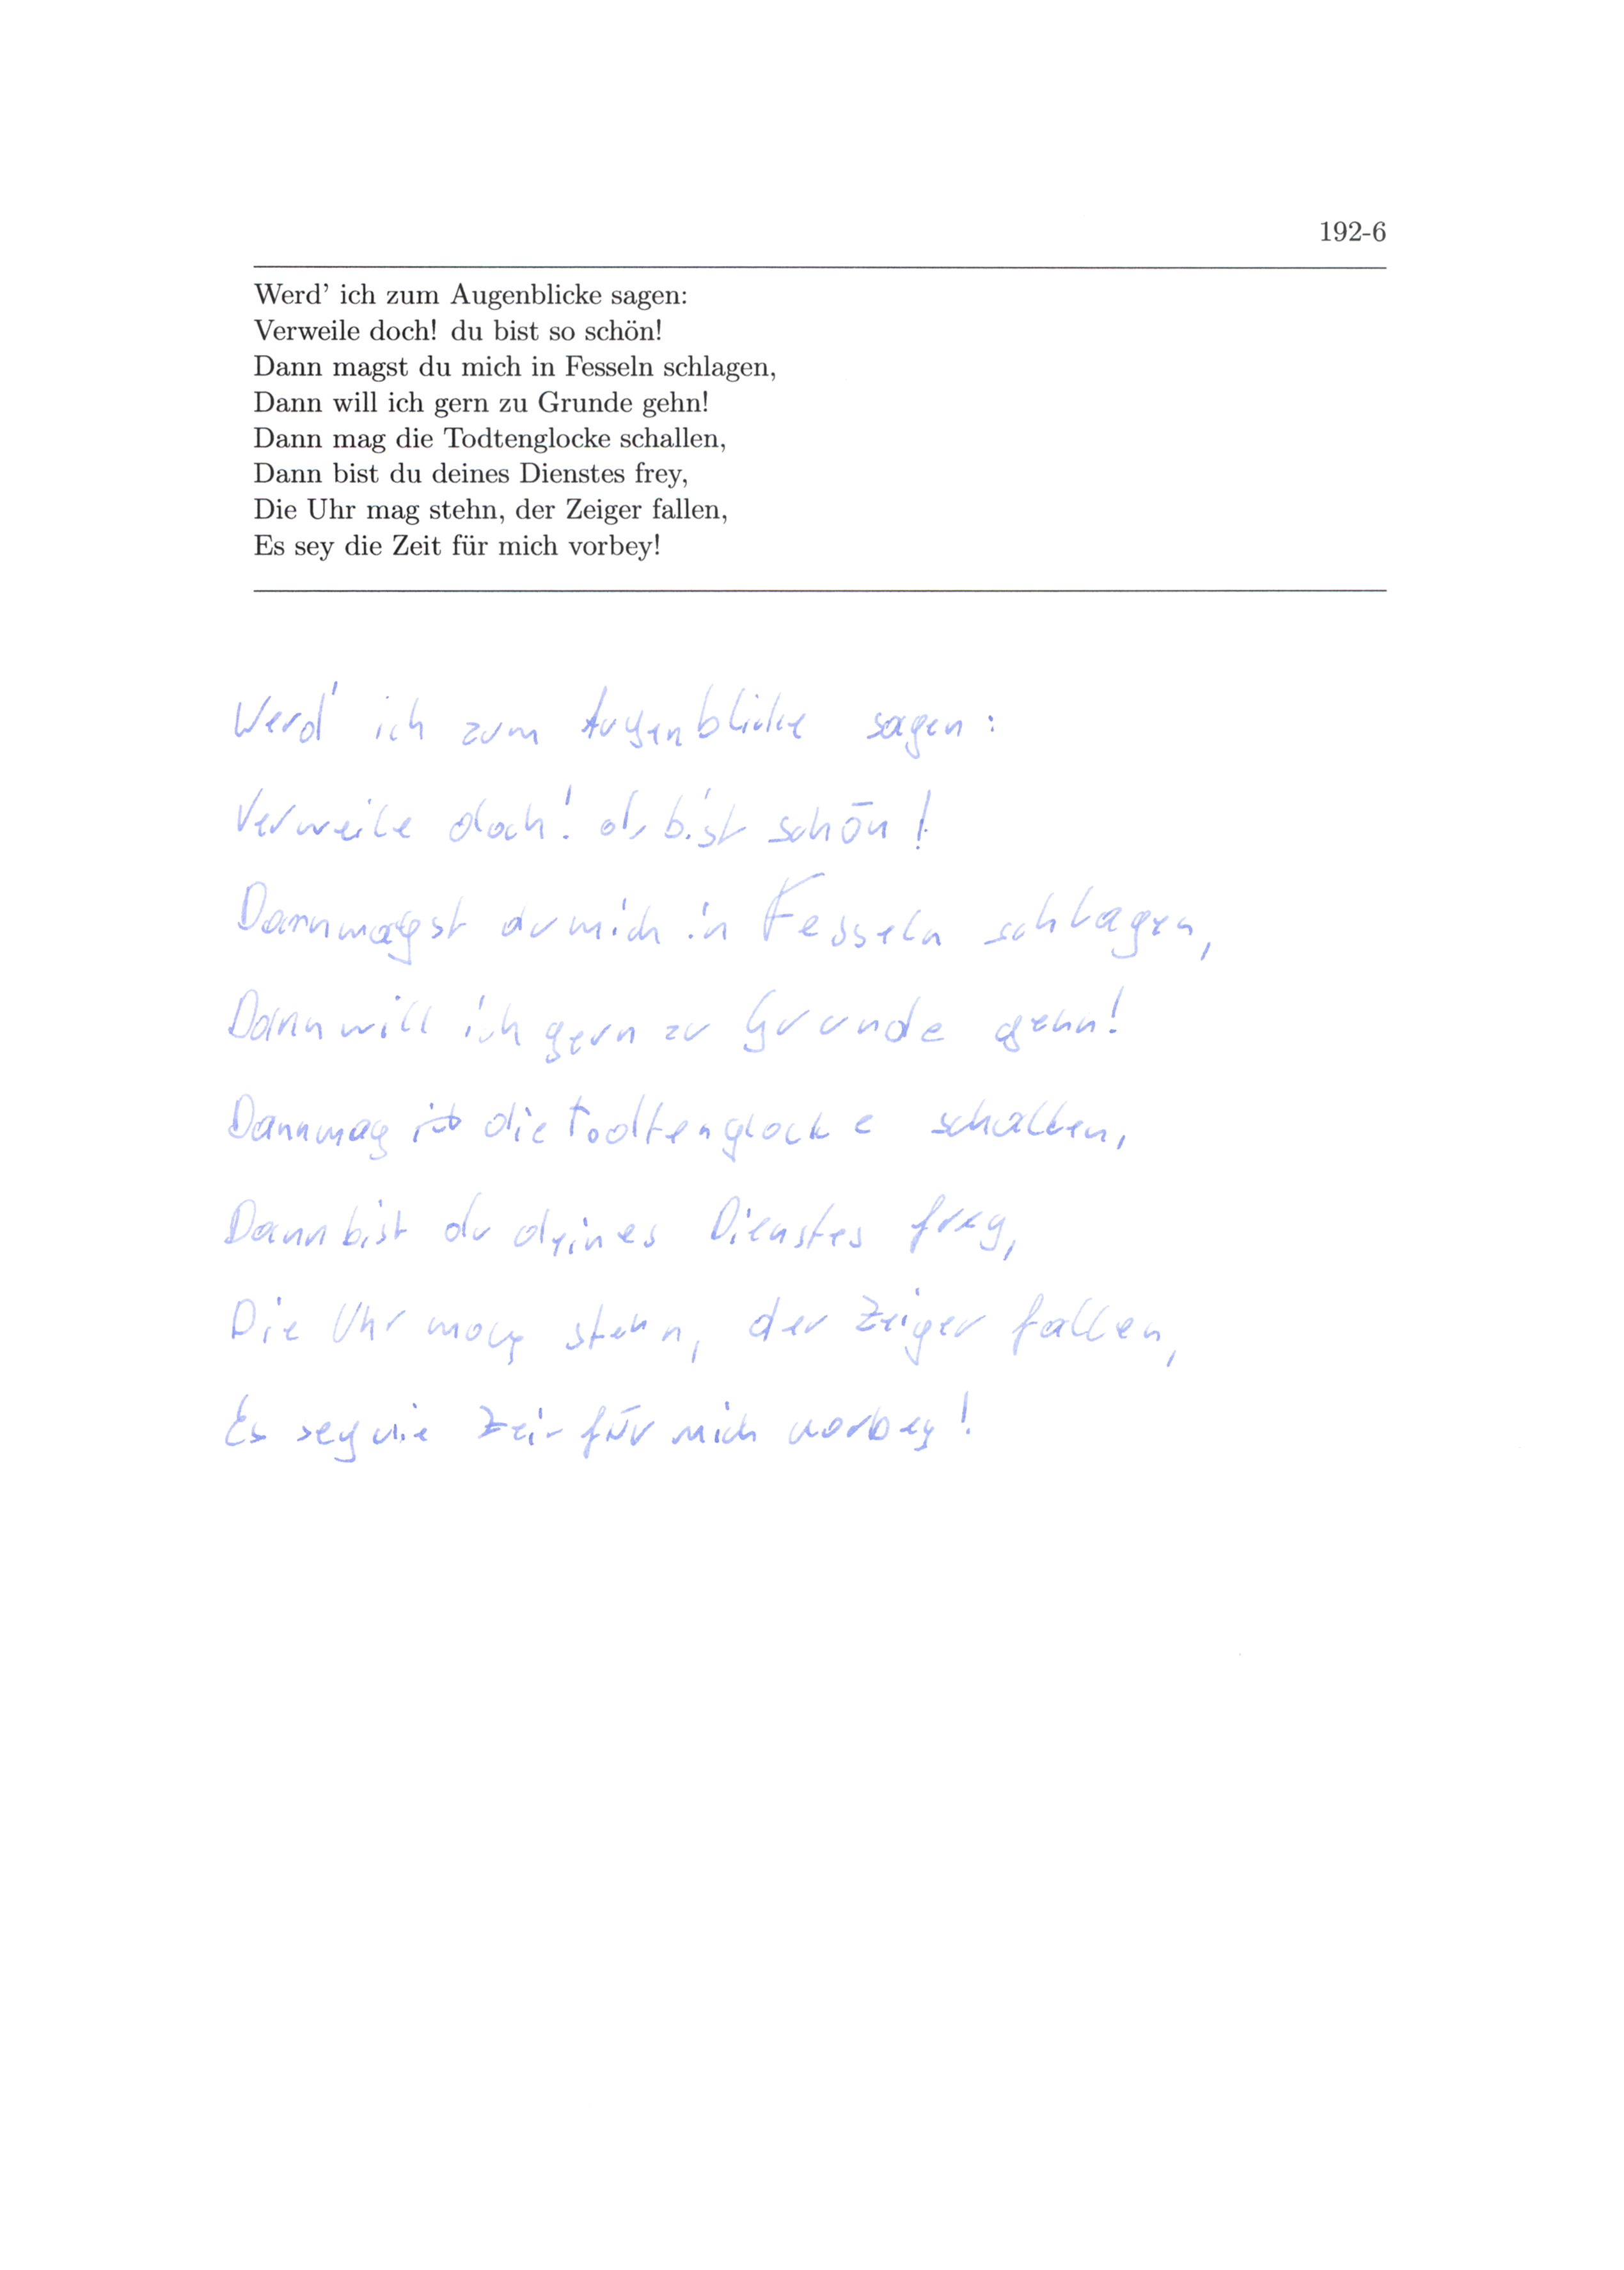 192-6
Werd' ich zum Augenblicke sagen:
Verweile doch! du bist so schön!
Dann magst du mich in Fesseln schlagen,
Dann will ich gern zu Grunde gehn!
Dann mag die Todtenglocke schallen,
Dann bist du deines Dienstes frey,
Die Uhr mag stehn, der Zeiger fallen,
Es sey die Zeit für mich vorbey!
Werd' ich zum Augenblicke sagen:
Verweile doch! du bist schön!
Dann magst du mich in Fesseln schlagen,
Dann will ich gern zu Grunde gehn!
Dann mag die Todtenglocke schallen,
Dann bist du deines Dienstes frey,
Die Uhr mag stehn, der Zeiger fallen,
Es sey die Zeit für mich vorbey!